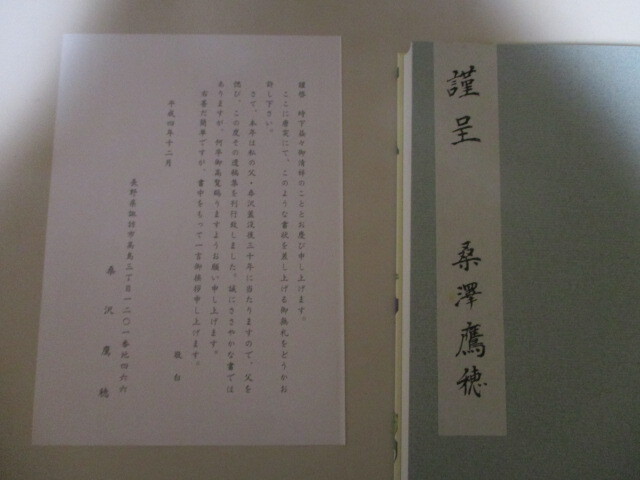 謹呈 桑澤鷹穂
謹啓 時下益々御清祥のこととお慶び申し上げます。
ここに唐突にて、このような書状を差し上げる御無礼をどうかお
許し下さい。
さて、本年は私の父・桑沢直没後三十年に当たりますので、父を
偲び、この度その遺稿集を刊行致しました。誠にささやかな書では
ありますが、何卒御高覧賜りますようお願い申し上げます。
右甚だ簡単ですが、書中をもって一言御挨拶申し上げます。
敬白
平成四年十二月
長野県諏訪市高島三丁目一二〇一番地四六六
桑沢鷹穂